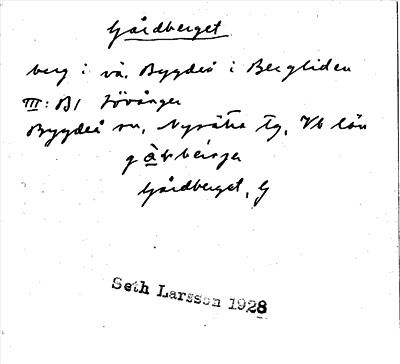 Gårdberget
berg i vä. Bygdeå i Bergliden
III: B1 Lövånger
Bygdeå sn, Nysätra tg, Vb län
Gårdberget, G
Seth Larsson 1928